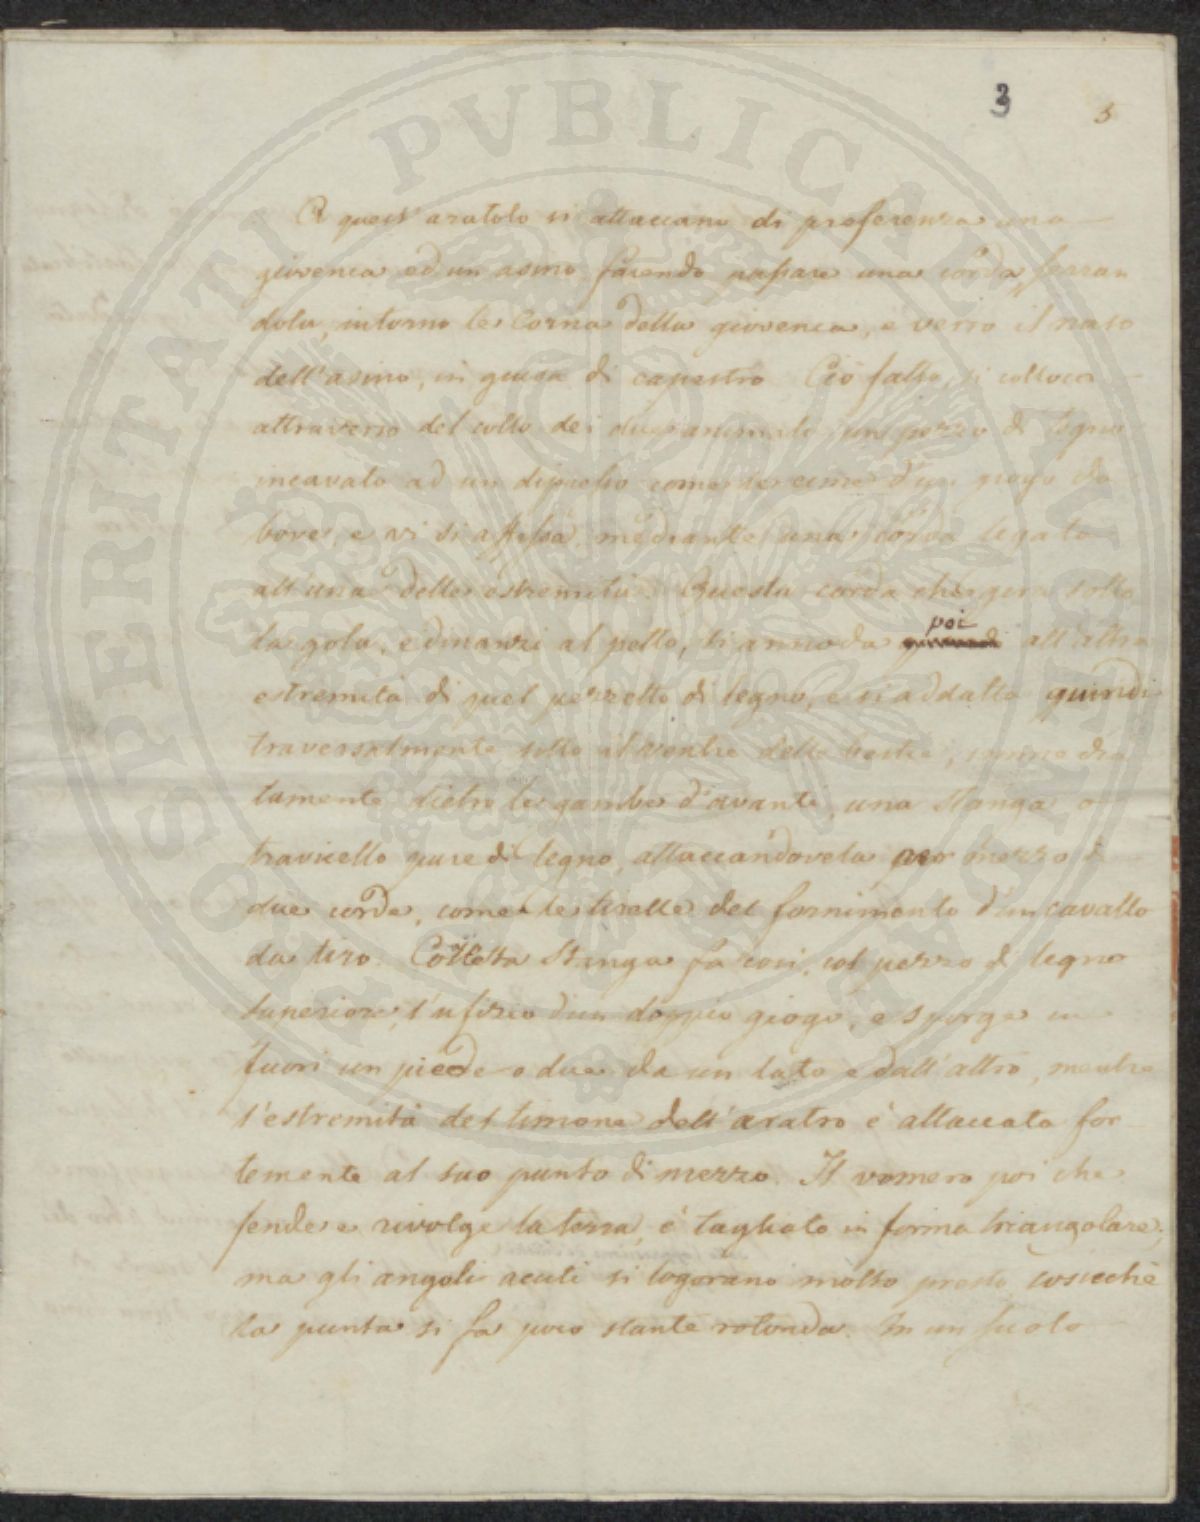 3 5
A quest'aratolo si attaccano di preferenza una
giovenca ed un asino, facendo passare una corda, serran
dola, intorno le corna della giovenca, e verso il naso
dell'asino, in guisa di capestro. Ciò fatto, si colloca
attraverso del collo dei due animali un pezzo di legno
incavato ad un dipresso come le cime d'un giogo da
bove, e vi si affissa, mediante una corda legata
all'una delle estremità. Questa corda che gira sotto
la gola, e dinanzi al petto, si annoda poi all'altra
estremità di quel pezzetto di legno, e si addatta quindi
traversalmente sotto il ventre delle bestie, immedia
tamente dietro le gambe d'avanti, una stanga o
travicello pure di legno, attaccandovela per mezzo di
due corde, come le tirelle del fornimento d'un cavallo
da tiro. Cotesta stanga fa così, col pezzo di legno
superiore, l'ufizio d'un doppio giogo, e sporge in
fuori un piede o due da un lato e dall'altro, mentre
l'estremità del timone dell'aratro è attaccata for
temente al suo punto di mezzo. Il vomero poi che
fende e rivolge la terra, è tagliato in forma triangolare;
ma gli angoli acuti si logorano molto presto, cosicchè
la punta si fa poco stante rotonda. In un suolo
PROSPERITATI PVBLICAE AVGENDAE